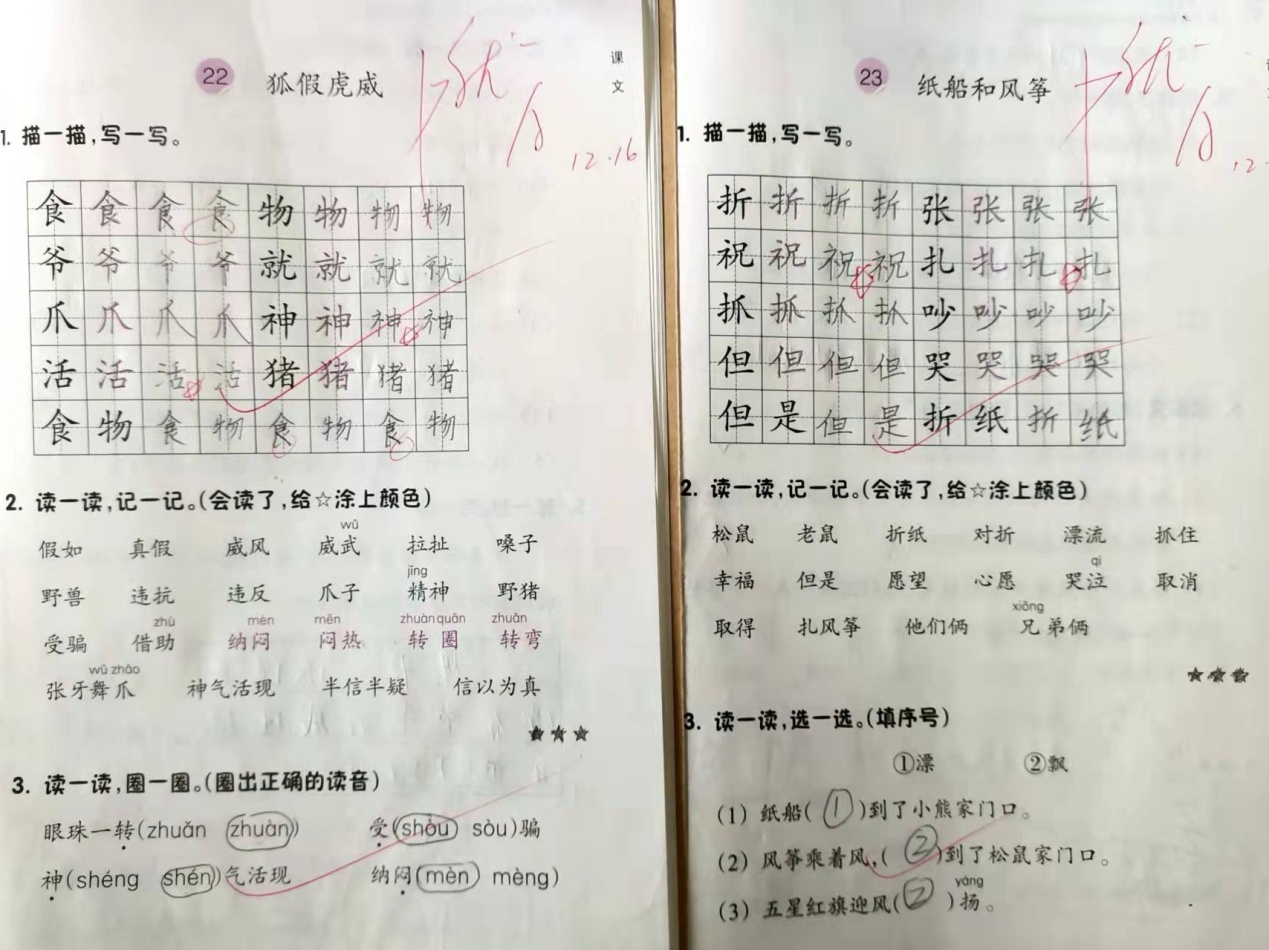 22 狐假虎威
课
文
优
12.16
1. 描一描,写一写。
食 食 食 食 物 物 物 物
爷 爷 爷 爷 就 就 就 就
爪 爪 爪 爪 神 神 神 神
活 活 活 活 猪 猪 猪 猪
食 物 食 物 食 物 食 物
2. 读一读,记一记。(会读了,给☆涂上颜色)
wǔ
假如 真假 威风 威武 拉扯 嗓子
jīng
野兽 违抗 违反 爪子 精神 野猪
zhù mèn mēn zhuàn quān zhuǎn
受骗 借助 纳闷 闷热 转圈 转弯
wǔ zhǎo
张牙舞爪 神气活现 半信半疑 信以为真
★★★
3. 读一读,圈一圈。(圈出正确的读音)
眼珠一转(zhuǎn zhuàn) 受(shòu sòu)骗
神(shéng shén)气活现 纳闷(mèn mèng)
23 纸船和风筝
优
12.
1. 描一描,写一写。
折 折 折 折 张 张 张 张
祝 祝 祝 祝 扎 扎 扎 扎
抓 抓 抓 抓 吵 吵 吵 吵
但 但 但 但 哭 哭 哭 哭
但 是 但 是 折 纸 折 纸
2. 读一读,记一记。(会读了,给☆涂上颜色)
松鼠 老鼠 折纸 对折 漂流 抓住
qì
幸福 但是 愿望 心愿 哭泣 取消
xiōng
取得 扎风筝 他们俩 兄弟俩
★★★
3. 读一读,选一选。(填序号)
①漂 ②飘
(1) 纸船(①)到了小熊家门口。
(2) 风筝乘着风,(②)到了松鼠家门口。
yáng
(3) 五星红旗迎风(②)扬。